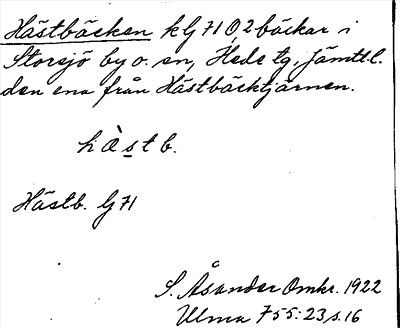 Hästbäcken k G 71 O, 2 bäckar i
Storsjö by o. sn, Hede tg, Jämtl. l.
den ena från Hästbäcktjärnen.
hàstb.
Hästb. G 71
S. Åsander Omkr. 1922
Ulma 755:23, s. 16